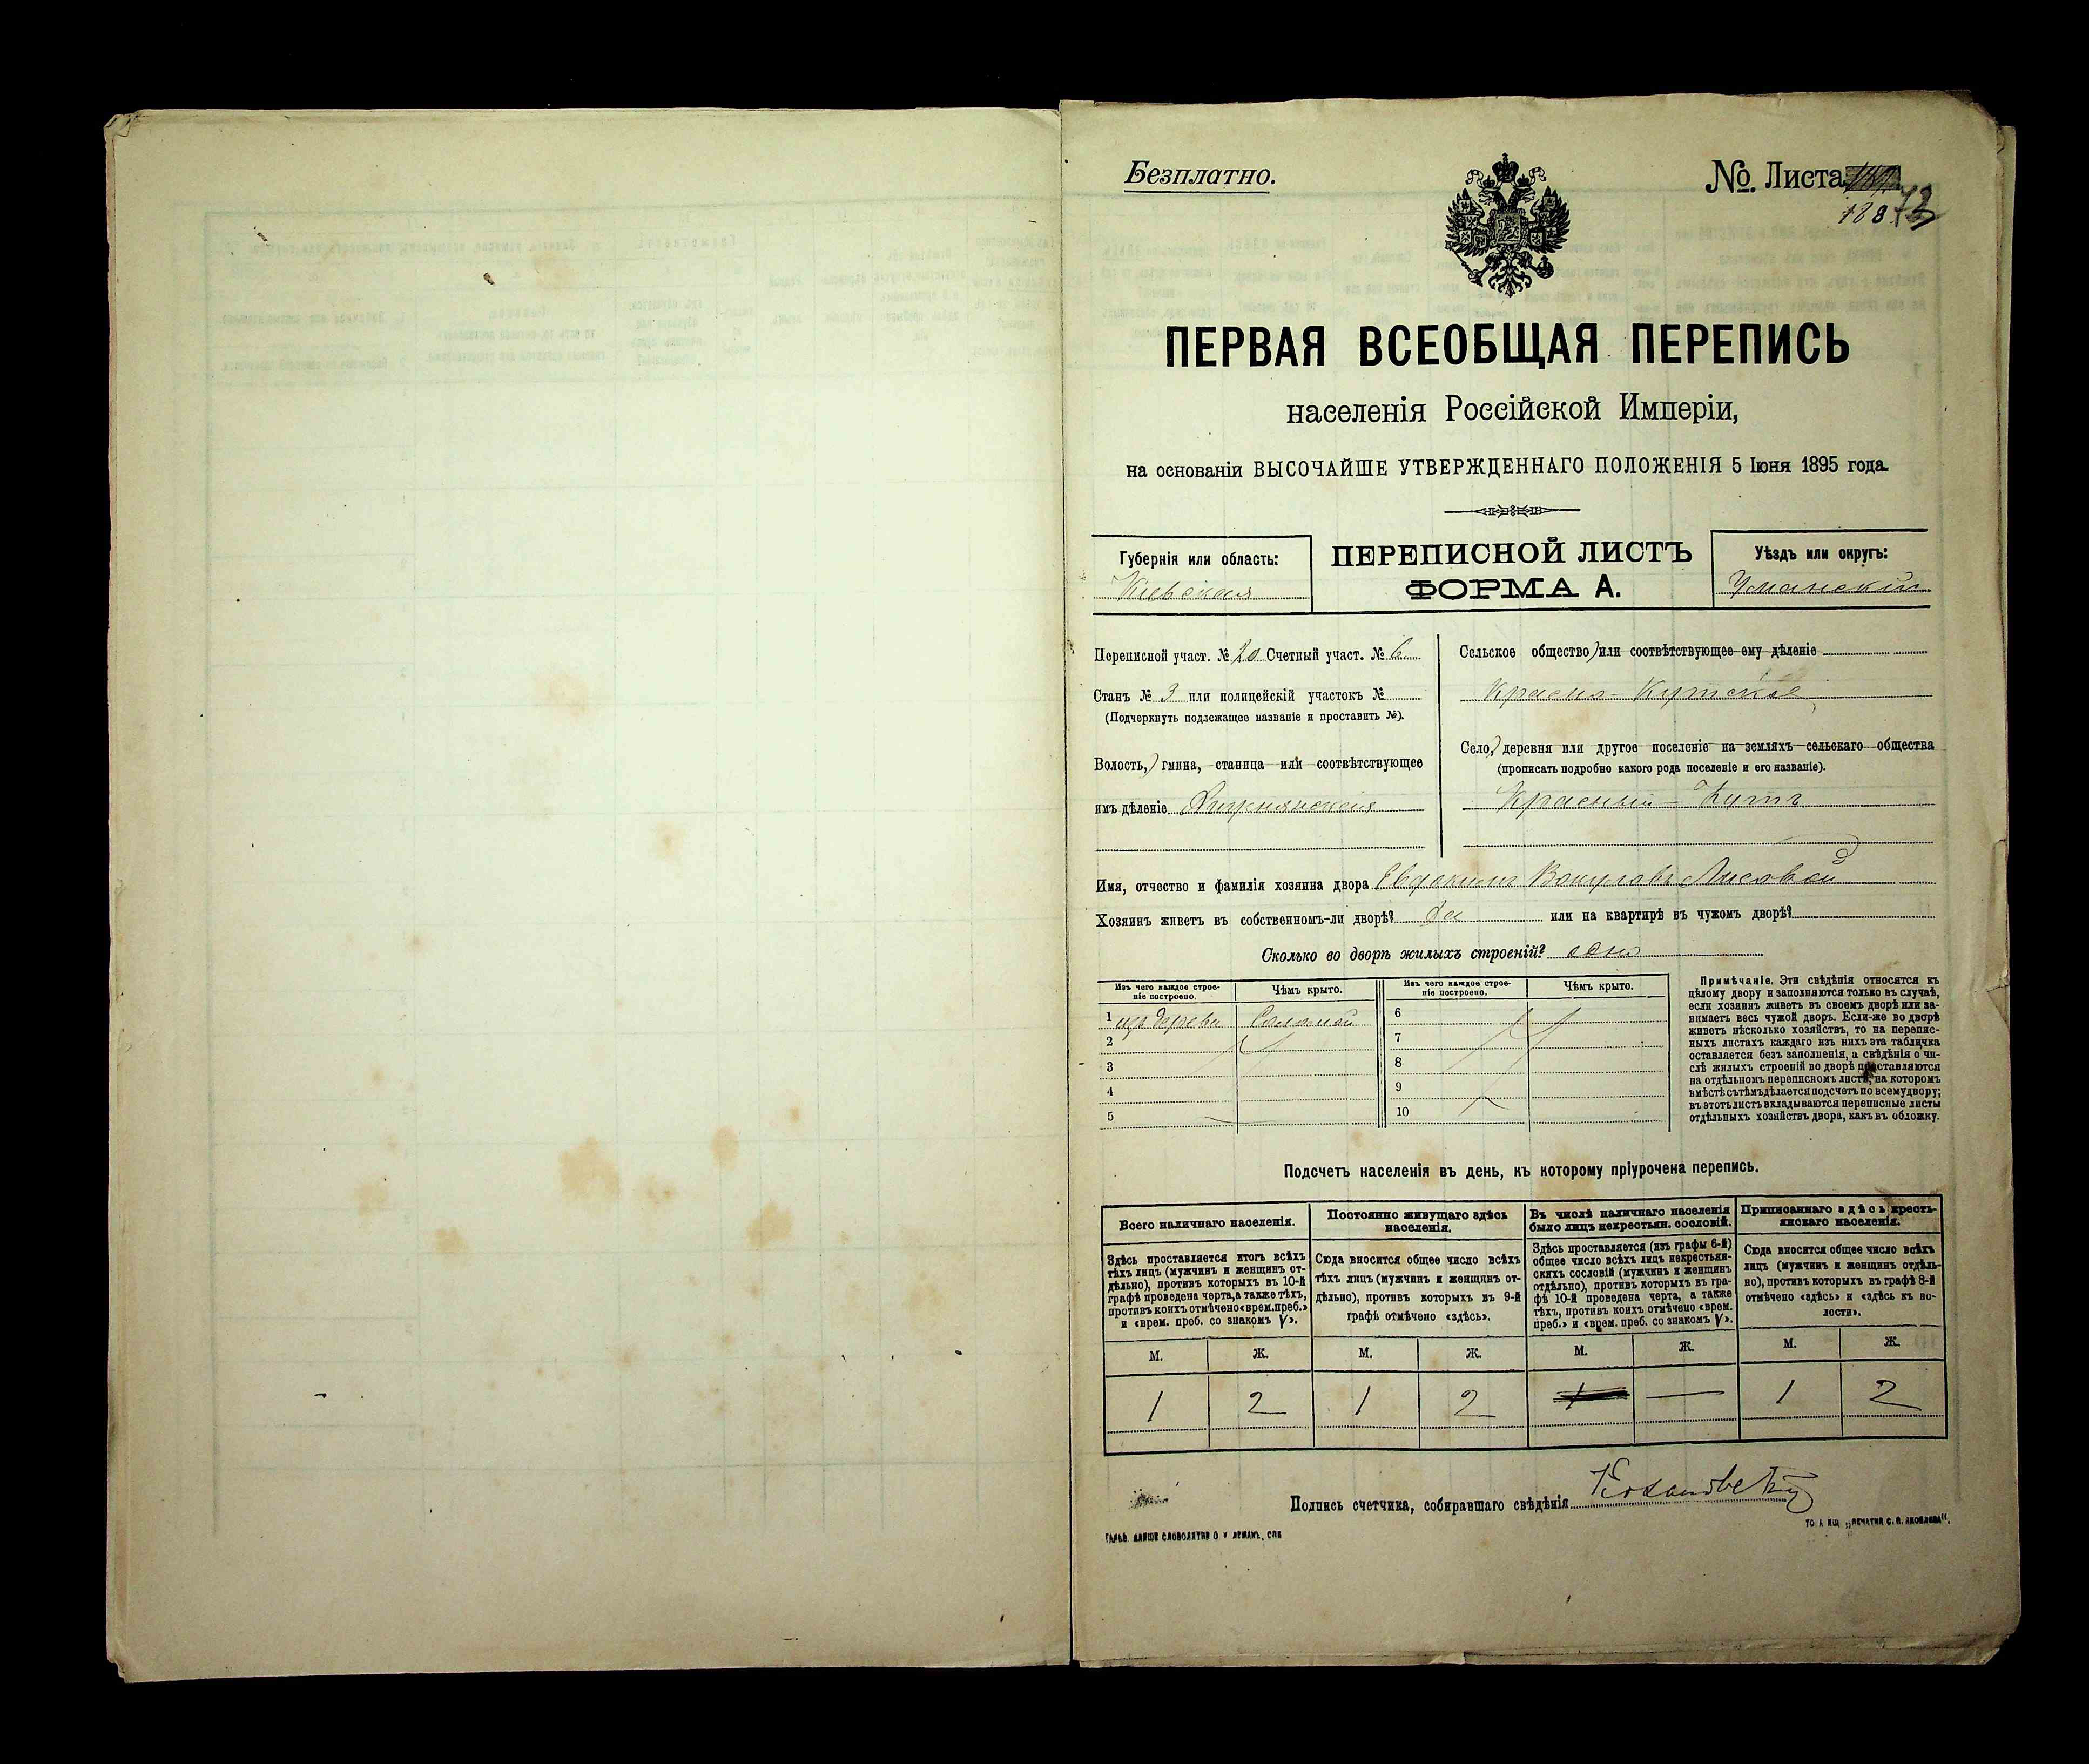 Безплатно.
№. Листа
188 73
ПЕРВАЯ ВСЕОБЩАЯ ПЕРЕПИСЬ
населенія Россійской Имперіи,
на основаніи ВЫСОЧАЙШЕ УТВЕРЖДЕННАГО ПОЛОЖЕНІЯ 5 Іюня 1895 года.
Губернія или область:
Кіевская
ПЕРЕПИСНОЙ ЛИСТЪ
ФОРМА А.
Уѣздъ или округъ:
Уманскій
Переписной участ. № 20 Счетный участ. № 6
Станъ № 3 или полицейскій участокъ №
(Подчеркнуть подлежащее названіе и проставить №).
Волость,) гмина, станица или соотвѣтствующее
имъ дѣленіе
Сельское общество) или соотвѣтствующее ему дѣленіе
Красно-Кутское
Село,) деревня или другое поселеніе на земляхъ сельскаго общества
(прописать подробно какого рода поселеніе и его названіе).
Красный-Кутъ
Имя, отчество и фамилія хозяина двора Евдокимъ Вакуловъ Лисовой
Хозяинъ живетъ въ собственномъ-ли дворѣ? да или на квартирѣ въ чужомъ дворѣ?
Сколько во дворѣ жилыхъ строеній? одно
Изъ чего каждое строе-
ніе построено.
Чѣмъ крыто.
1 изъ дерева Соломой
2
3
4
5
Изъ чего каждое строе-
ніе построено.
Чѣмъ крыто.
6
7
8
9
10
Примѣчаніе. Эти свѣдѣнія относятся къ
цѣлому двору и заполняются только въ случаѣ,
если хозяинъ живетъ въ своемъ дворѣ или за-
нимаетъ весь чужой дворъ. Если-же во дворѣ
живетъ нѣсколько хозяйствъ, то на перепис-
ныхъ листахъ каждаго изъ нихъ эта табличка
оставляется безъ заполненія, а свѣдѣнія о чи-
слѣ жилыхъ строеній во дворѣ проставляются
на отдѣльномъ переписномъ листѣ, на которомъ
вмѣстѣ съ тѣмъ дѣлается подсчетъ по всему двору;
въ этотъ листъ вкладываются переписные листы
отдѣльныхъ хозяйствъ двора, какъ въ обложку.
Подсчетъ населенія въ день, къ которому пріурочена перепись.
Всего наличнаго населенія.
Здѣсь проставляется итогъ всѣхъ
тѣхъ лицъ (мужчинъ и женщинъ от-
дѣльно), противъ которыхъ въ 10-й
графѣ проведена черта, а также тѣхъ,
противъ коихъ отмѣчено «врем. преб.»
и «врем. преб. со знакомъ V».
Постоянно живущаго здѣсь
населенія.
Сюда вносится общее число всѣхъ
тѣхъ лицъ (мужчинъ и женщинъ от-
дѣльно), противъ которыхъ въ 9-й
графѣ отмѣчено «здѣсь».
Въ числѣ наличнаго населенія
было лицъ некрестьян. сословій.
Здѣсь проставляется (изъ графы 6-й)
общее число всѣхъ лицъ некрестьян-
скихъ сословій (мужчинъ и женщинъ
отдѣльно), противъ которыхъ въ гра-
фѣ 10-й проведена черта, а также
тѣхъ, противъ коихъ отмѣчено «врем.
преб.» и «врем. преб. со знакомъ V».
Приписаннаго здѣсь кресть-
янскаго населенія.
Сюда вносится общее число всѣхъ
лицъ (мужчинъ и женщинъ отдѣль-
но), противъ которыхъ въ графѣ 8-й
отмѣчено «здѣсь» и «здѣсь къ во-
лости».
М. Ж. М. Ж. М. Ж. М. Ж.
1 2 1 2 — 1 2
Подпись счетчика, собиравшаго свѣдѣнія